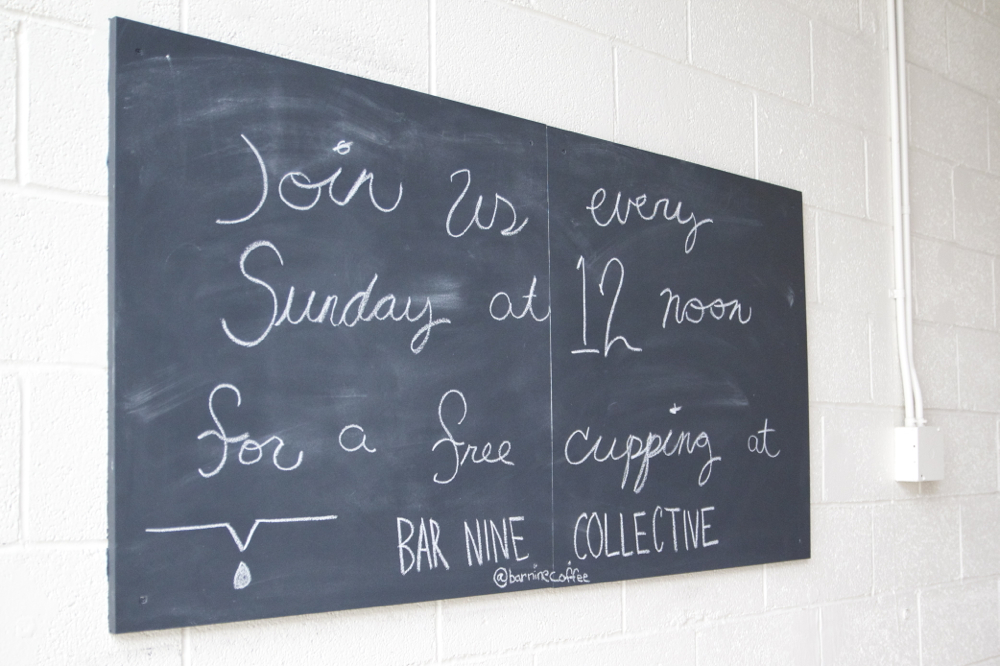 Join us every
Sunday at 12 noon
for a free cupping at
BAR NINE COLLECTIVE
@barninecoffee